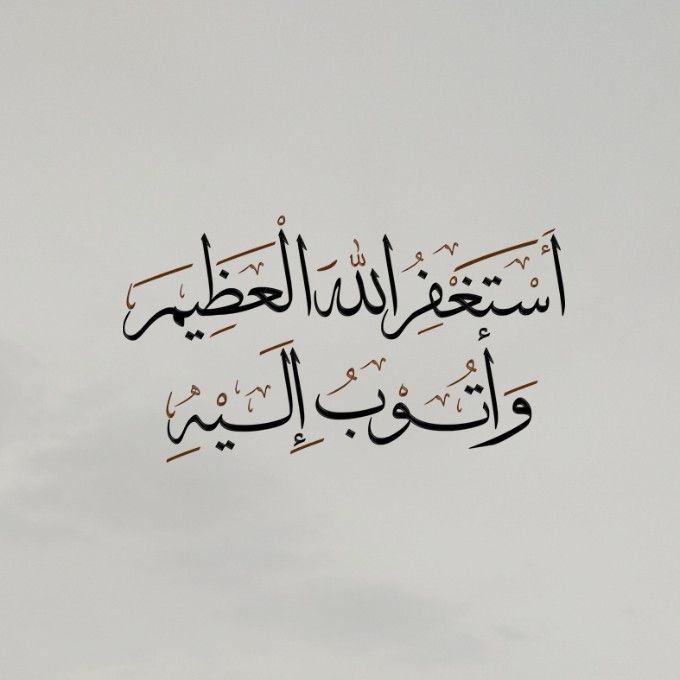 أَسْتَغْفِرُ اللّٰهَ الْعَظِيمَ
وَأَتُوْبُ إِلَيْهِ